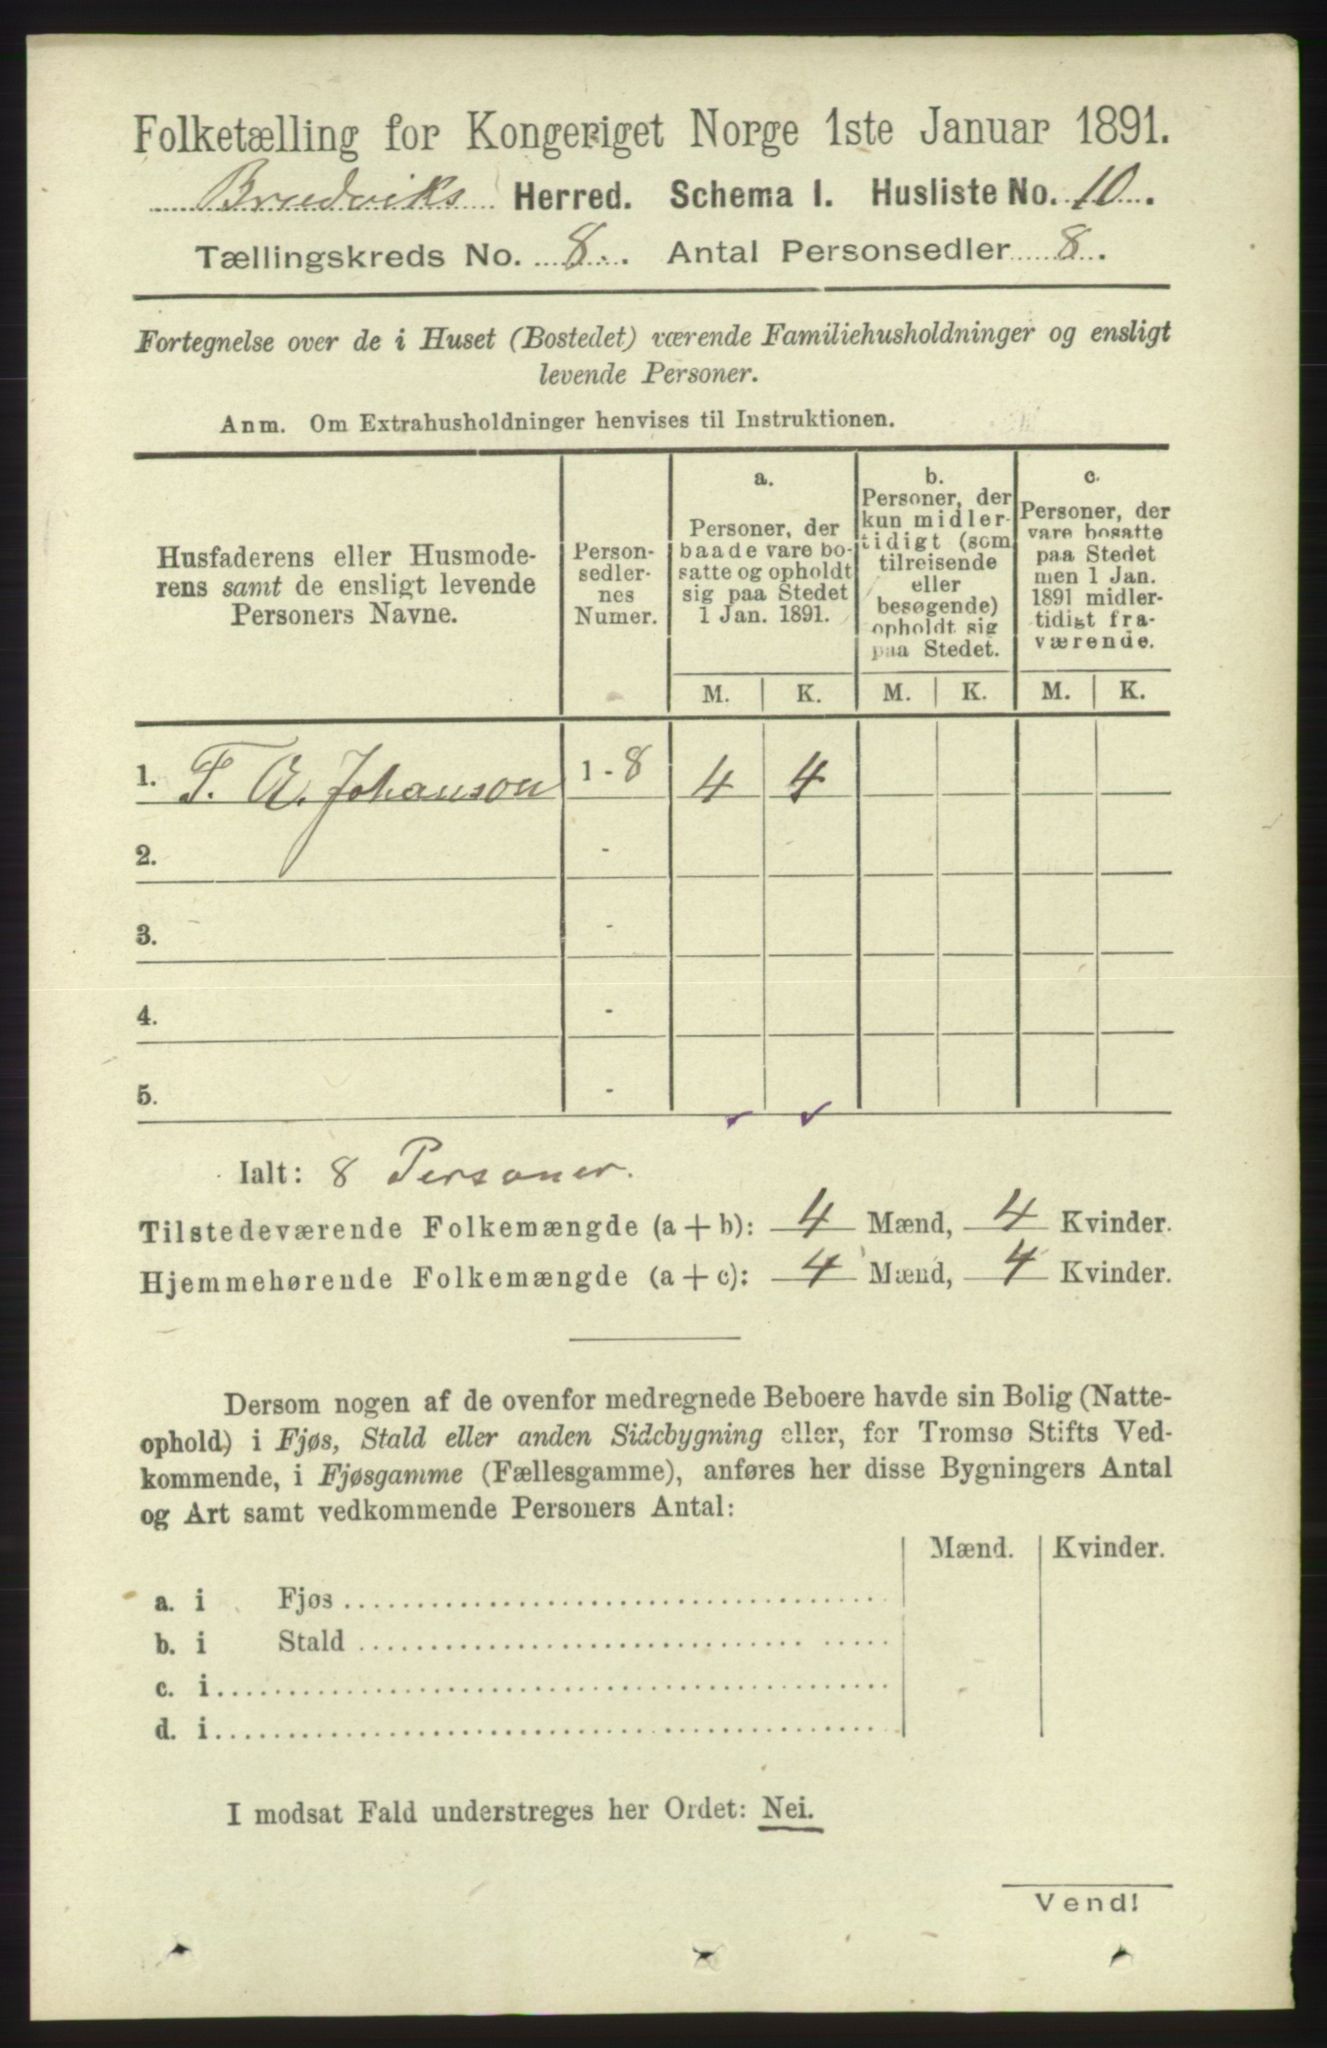 Folketælling for Kongeriget Norge 1ste Januar 1891.
Bruviks Herred. Schema I. Husliste No. 10.
Tællingskreds No. 8. Antal Personsedler 8.
Fortegnelse over de i Huset (Bostedet) værende Familiehusholdninger og ensligt
levende Personer.
Anm. Om Extrahusholdninger henvises til Instruktionen.
Husfaderens eller Husmode-
rens samt de ensligt levende
Personers Navne.
Person-
sedler-
nes
Numer.
a.
Personer, der
baade vare bo-
satte og opholdt
sig paa Stedet
1 Jan. 1891.
b.
Personer, der
kun midler-
tidigt (som
tilreisende
eller
besøgende)
opholdt sig
paa Stedet.
c.
Personer, der
vare bosatte
paa Stedet
men 1 Jan.
1891 midler-
tidigt fra-
værende.
M. K. M. K. M. K.
1. T. A. Johanson 1 - 8 4 4
2. -
3. -
4. -
5. -
Ialt: 8 Personer.
Tilstedeværende Folkemængde (a + b): 4 Mænd, 4 Kvinder.
Hjemmehørende Folkemængde (a + c): 4 Mænd, 4 Kvinder.
Dersom nogen af de ovenfor medregnede Beboere havde sin Bolig (Natte-
ophold) i Fjøs, Stald eller anden Sidebygning eller, for Tromsø Stifts Ved-
kommende, i Fjøsgamme (Fællesgamme), anføres her disse Bygningers Antal
og Art samt vedkommende Personers Antal:
Mænd. Kvinder.
a. i Fjøs
b. i Stald
c. i
d. i
I modsat Fald understreges her Ordet: Nei.
Vend!